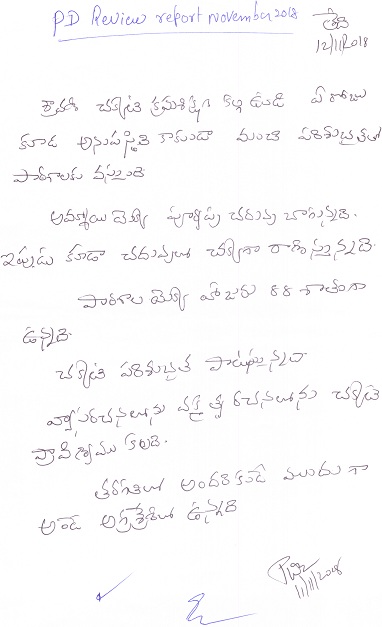 PD Review report november 2018
తేది
12/11/2018
శ్రావణి చక్కటి క్రమశిక్షణ కల్గి ఉండి ఏ రోజు
కూడ అనుపస్థితి కాకుండా మంచి పరిశుభ్రతతో
పాఠశాలకు వస్తుంది
అమ్మాయి యొక్క పూర్వపు చదువు బాగున్నది.
ఇప్పుడు కూడా చదువులో చక్కగా రాణిస్తున్నది
పాఠశాల యొక్క హాజరు 88 శాతంగా
ఉన్నది.
చక్కటి పరిశుభ్రత పాటిస్తున్నది
వ్యాసరచనలోను వక్తృత్వ రచనలోను చక్కటి
ప్రావీణ్యము కలది.
తరగతిలో అందరికంటే ముందుగా
అంటే అగ్రశ్రేణిలో ఉన్నది
11/11/2018